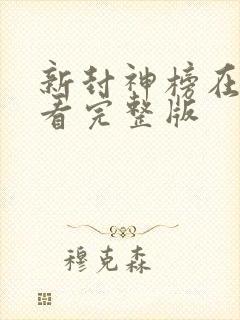 新封神榜在
看完整版
穆克森